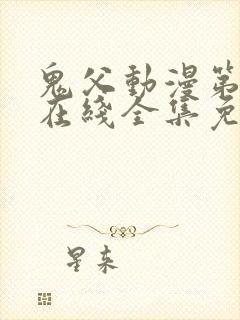 鬼父動漫第
在綫全集免
星来